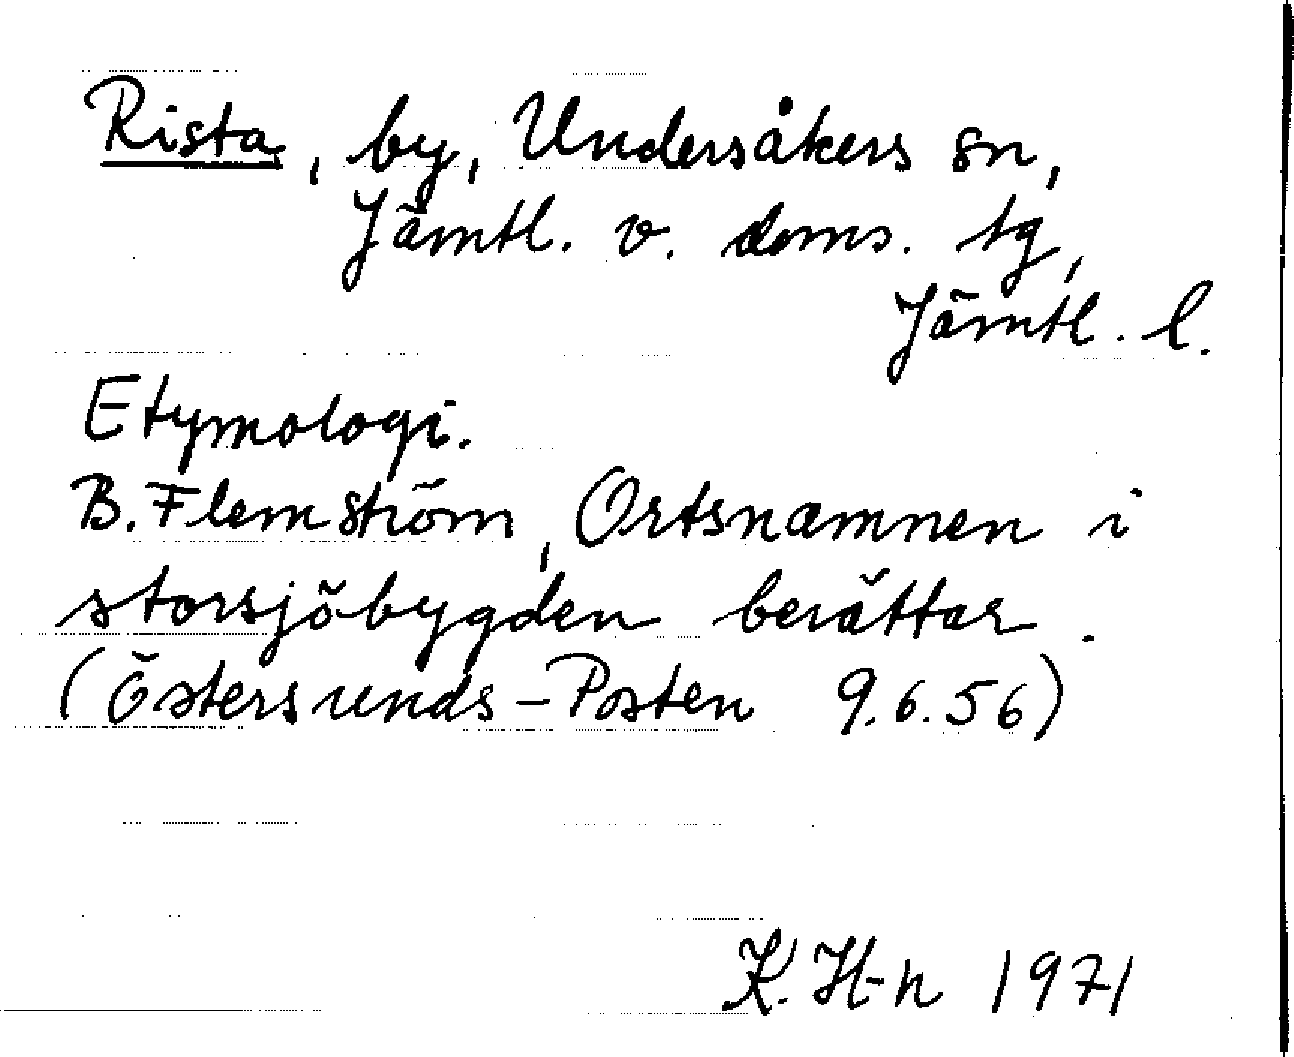 Rista, by, Undersåkers sn,
Jämtl. v. doms. tg,
Jämtl. l.
Etymologi.
B. Flemström, Ortsnamnen i
storsjöbygden berättar.
(Östersunds-Posten 9.6.56)
K. H-n 1971